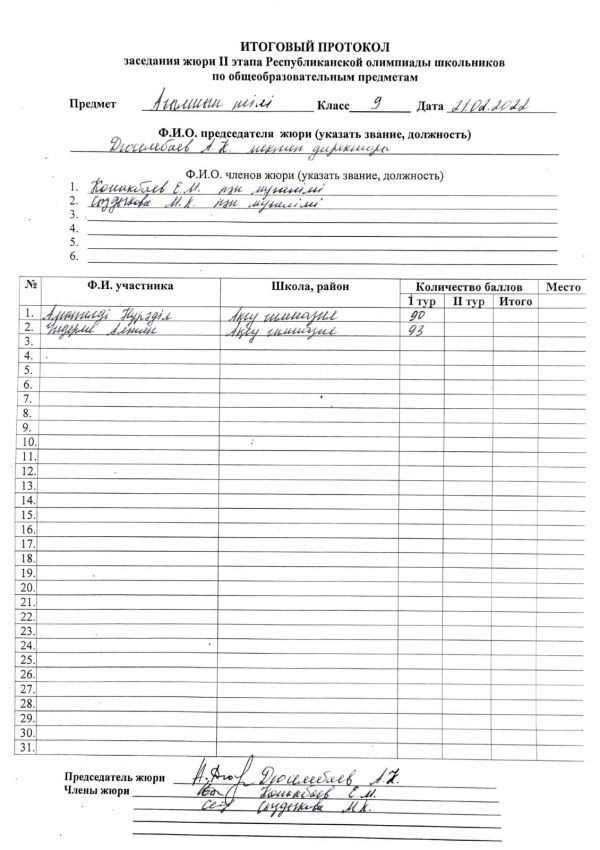 ИТОГОВЫЙ ПРОТОКОЛ
заседания жюри II этапа Республиканской олимпиады школьников
по общеобразовательным предметам
Предмет Ағылшын тілі Класс 9 Дата 21.02.2022
Ф.И.О. председателя жюри (указать звание, должность)
Дюселебаев А.К. мектеп директоры
Ф.И.О. членов жюри (указать звание, должность)
1. Конакбаев Е.М. пән мұғалімі
2. Сыздыкова М.К. пән мұғалімі
3.
4.
5.
6.
№ Ф.И. участника Школа, район Количество баллов Место
I тур II тур Итого
1. Аманкелді Ақсу гимназия 90
2. Ақсу гимназия 93
3.
4.
5.
6.
7.
8.
9.
10.
11.
12.
13.
14.
15.
16.
17.
18.
19.
20.
21.
22.
23.
24.
25.
26.
27.
28.
29.
30.
31.
Председатель жюри Дюселебаев А.К.
Члены жюри Конакбаев Е.М.
Сыздыкова М.К.